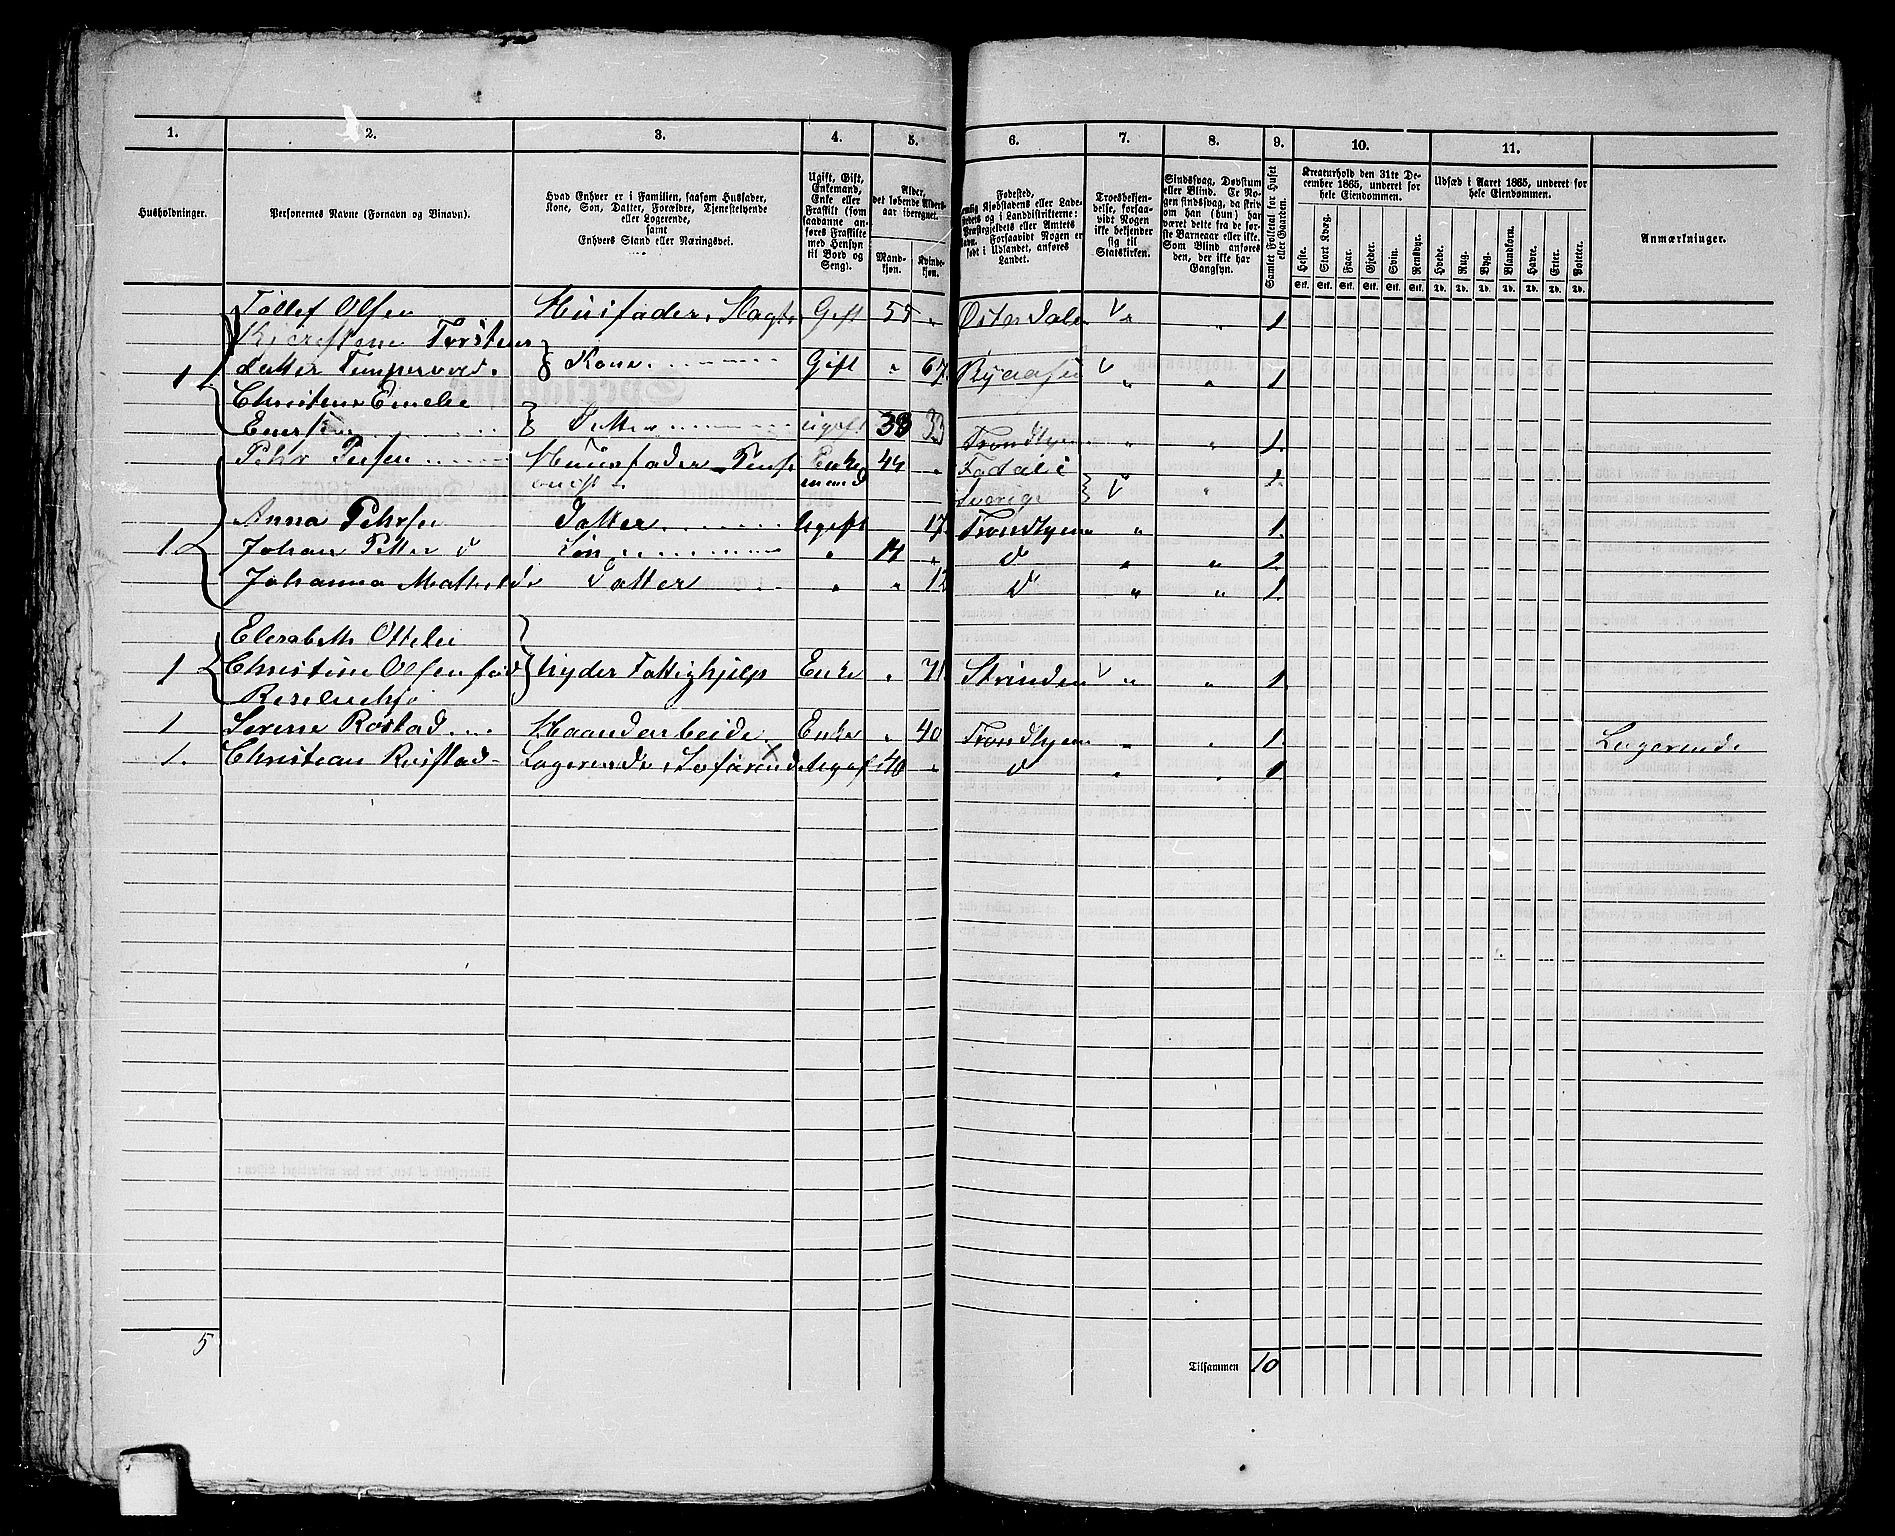 1. 2. 3. 4. 5. 6. 7. 8. 9. 10. 11.
Husholdninger.
Personernes Navne (Fornavn og Binavn).
Hvad Enhver er i Familien, saasom Husfader,
Kone, Søn, Datter, Forældre, Tjenestetyende
eller Logerende,
samt
Enhvers Stand eller Næringsvei.
Ugift, Gift,
Enkemand,
Enke eller
Fraskilt (som
saadanne an-
føres Fraskilte
med Hensyn
til Bord og
Seng).
Alder,
det løbende Alders-
aar iberegnet.
Mand-
kjøn.
Kvinde-
kjøn.
Fødested,
Kjøbstadens eller Lade-
stedets og i Landdistrikterne:
Præstegjeldets eller Amtets
Navn. Forsaavidt Nogen er
født i Udlandet, anføres
Landet.
Troesbekjen-
delse, forsaa-
vidt Nogen
ikke bekjender
sig til
Statskirken.
Sindssvag, Døvstum
eller Blind. Er No-
gen sindssvag, da skriv
om han (hun) har
været dette fra de før-
ste Barneaar eller ikke.
Som Blind anføres
den, der ikke har
Gangsyn.
Samlet Folketal for Huset
eller Gaarden.
Kreaturhold den 31te De-
cember 1865, underet for
hele Eiendommen.
Heste. Stort Kvæg. Faar. Gjeder. Svin. Rensdyr.
Stk. Stk. Stk. Stk. Stk. Stk.
Udsæd i Aaret 1865, underet for
hele Eiendommen.
Hvede. Rug. Byg. Blandkorn. Havre. Erter. Poteter.
Td. Td. Td. Td. Td. Td. Td.
Anmærkninger.
Tollef Olsen Husfader, Gift 55 " Østerdalen " 1
Torstens
datter Kone Gift " 67 " " 1
1
Christine Emelie
Datter ugift 38 33 Trondhjem " " 1.
Pehr Persen Huusfader Enke 44 "
mand Sverige " 1.
Anna Pehrsen Datter Ugift 17 Trondhjem " 1.
1 Johan Petter d Søn " 14 " d " " 1.
Johanna Mathilde Datter " " 12 d " " 1.
Elesabeth Ottelie
1 Christine Olsen fød Nyder Fattighjelp Enke " 71 Strinden " " 1.
1 Serene Rostad Haandarbeide Enke " 40 Trondhjem " " 1. Logerende
1. Christian Logerende, Ugift 40 " d " " 1
5
Tilsammen 10